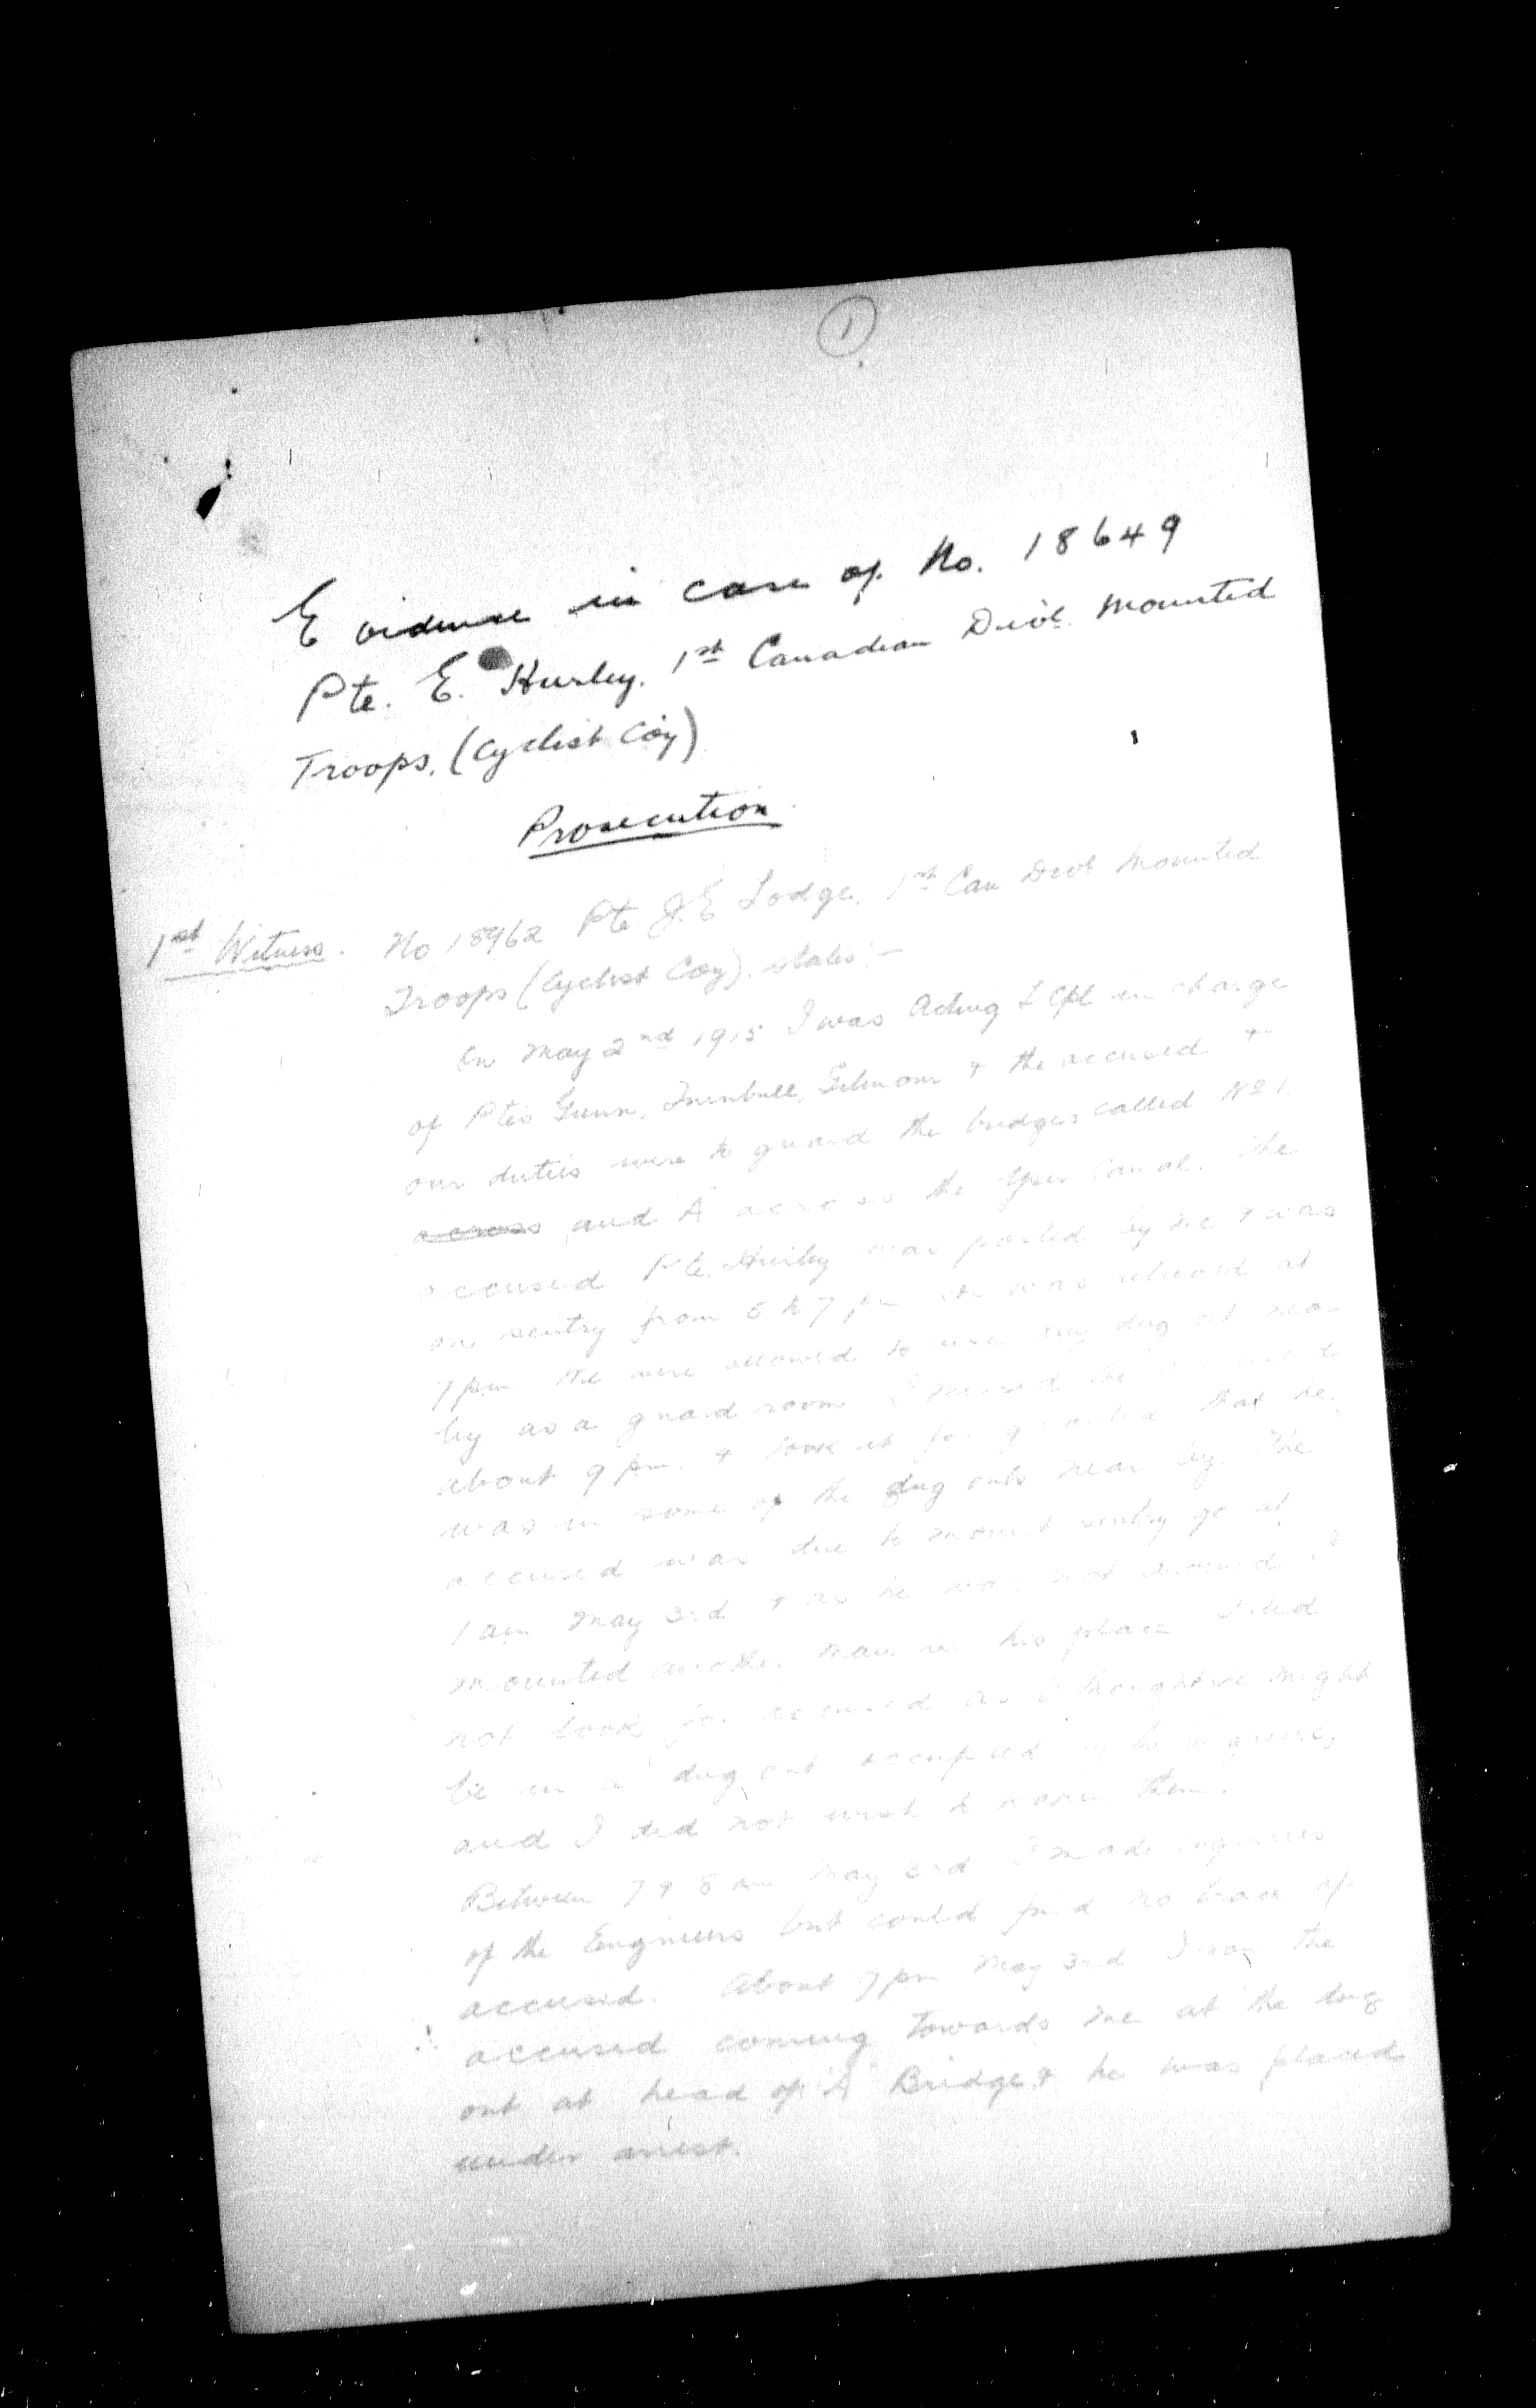 1
Evidence in case of No. 18649
Pte. E. Hurley. 1st Canadian Divl. Mounted
Troops. (Cyclist Coy)
Prosecution.
1st Witness. No 18962 Pte J.E Lodge, 1st Can Divl Mounted
Troops (Cyclist Coy). states:—
On May 2nd 1915 I was Acting L Cpl in charge
of Ptes Gunn, Turnbull, Gilmour & the accused &
our duties were to guard the bridges called No 1.
across and A across the Yser Canal. The
accused Pte. Hurley was posted by me & was
on sentry from 5 to 7 pm was relieved at
7 pm. We were allowed to use dug out near
by as a guard room I missed the accused
about 9 pm. & took it for granted that he
was in some of the dug outs near by. The
accused was due to mount sentry go at
1 am May 3rd & as he was not around I
mounted another man in his place I did
not look for accused as I thought he might
be in a dug out occupied by Engineers
and I did not wish to them.
Between 7 & 8 am May 3rd I made inquiries
of the Engineers but could find no trace of
accused. About 7 pm May 3rd I saw the
accused coming towards me at the dug
out at head of A Bridge & he was placed
under arrest.